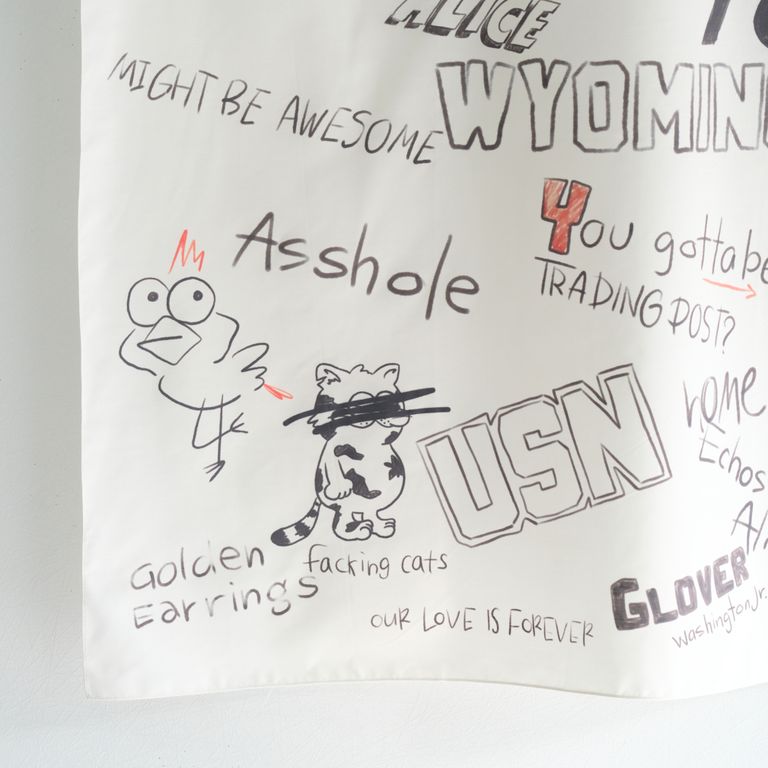 ALICE
MIGHT BE AWESOME
WYOMIN
Asshole
You gotta be
TRADING POST?
USN
Echos
Golden
Earrings
facking cats
OUR LOVE IS FOREVER
GLOVER
Washington Jr.